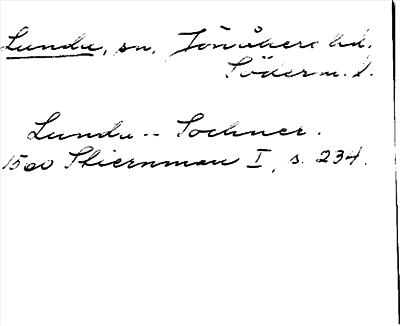 Lunda, sn. Jönåkers hd.
Söderm. l.
Lunda -- Sochner.
1500 Stiernman I, s. 234.